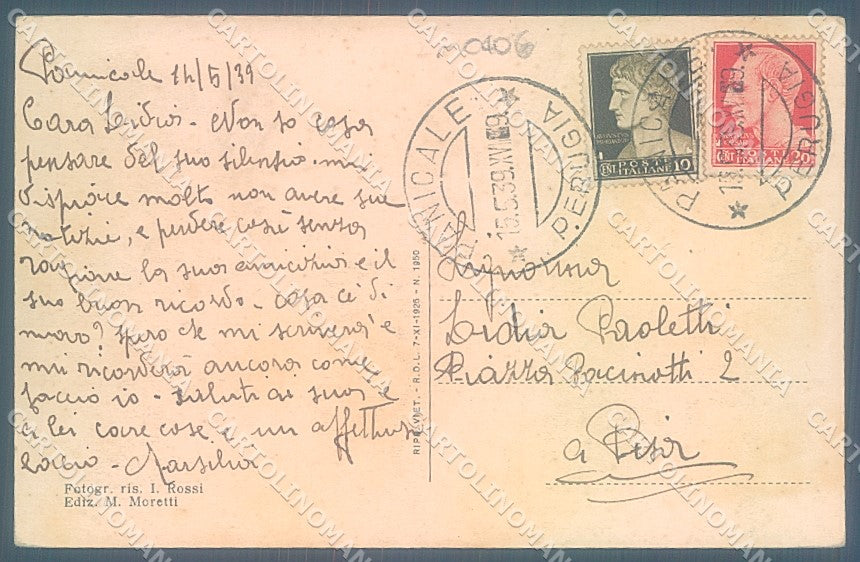 Panicale 14/5/39
Cara Lidia - Non so cosa
pensare del suo silenzio - mi
dispiace molto non avere sue
notizie, e perdere così senza
ragione la sua amicizia e il
suo buon ricordo - cosa c'è di
nuovo? spero che mi scriverà e
mi ricorderà ancora come
faccio io - saluti ai suoi e
a lei care cose e un affettuoso
bacio - Marsilia
Fotogr. ris. I. Rossi
Ediz. M. Moretti
RIP. VIET. - R.D.L. 7-XI-1925 - N. 1950
0406
PANICALE
P. PERUGIA
15.5.39.XVII
POSTE
ITALIANE
CENT. 10
PANICALE
P. PERUGIA
15.5.39.XVII
CENT. 20
Signorina
Lidia Paoletti
Piazza Pacinotti 2
a Pisa
CARTOLINOMANIA